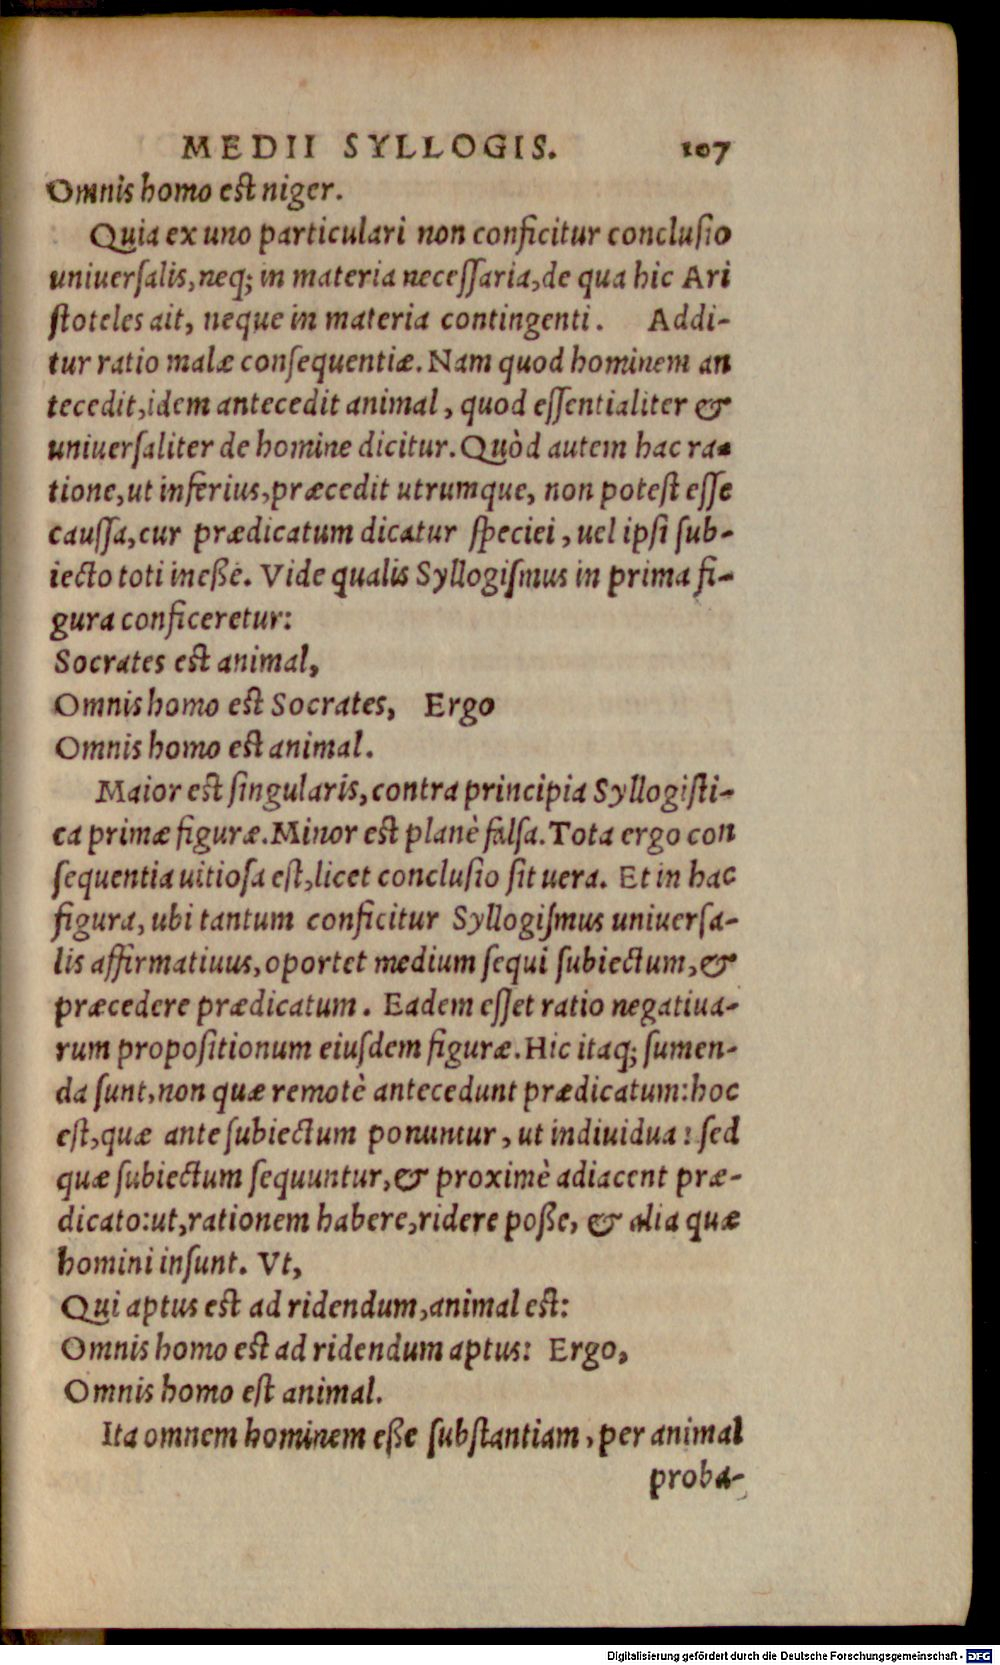 MEDII SYLLOGIS. 107
Omnis homo est niger.
Quia ex uno particulari non conficitur conclusio
uniuersalis, neq; in materia necessaria, de qua hic Ari
stoteles ait, neque in materia contingenti. Addi-
tur ratio malæ consequentiæ. Nam quod hominem an
tecedit, idem antecedit animal, quod essentialiter &
uniuersaliter de homine dicitur. Quòd autem hac ra-
tione, ut inferius, præcedit utrumque, non potest esse
caussa, cur prædicatum dicatur speciei, uel ipsi sub-
iecto toti inesse. Vide qualis Syllogismus in prima fi-
gura conficeretur:
Socrates est animal,
Omnis homo est Socrates, Ergo
Omnis homo est animal.
Maior est singularis, contra principia Syllogisti-
ca primæ figuræ. Minor est planè falsa. Tota ergo con
sequentia uitiosa est, licet conclusio sit uera. Et in hac
figura, ubi tantum conficitur Syllogismus uniuersa-
lis affirmatiuus, oportet medium sequi subiectum, &
præcedere prædicatum. Eadem esset ratio negatiua-
rum propositionum eiusdem figuræ. Hic itaq; sumen-
da sunt, non quæ remotè antecedunt prædicatum: hoc
est, quæ ante subiectum ponuntur, ut indiuidua: sed
quæ subiectum sequuntur, & proximè adiacent præ-
dicato: ut, rationem habere, ridere posse, & alia quæ
homini insunt. Vt,
Qui aptus est ad ridendum, animal est:
Omnis homo est ad ridendum aptus: Ergo,
Omnis homo est animal.
Ita omnem hominem esse substantiam, per animal
proba-
Digitalisierung gefördert durch die Deutsche Forschungsgemeinschaft - DFG